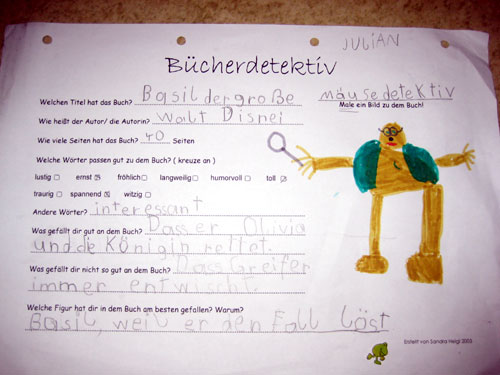 JULIAN
Bücherdetektiv
Welchen Titel hat das Buch? Basil der große mäusedetektiv
Male ein Bild zu dem Buch!
Wie heißt der Autor/ die Autorin? Walt Disnei
Wie viele Seiten hat das Buch? 40 Seiten
Welche Wörter passen gut zu dem Buch? ( kreuze an )
lustig ernst fröhlich langweilig humorvoll toll
traurig spannend witzig
Andere Wörter? interessant
Was gefällt dir gut an dem Buch? Das er Olivia
und die Königin rettet.
Was gefällt dir nicht so gut an dem Buch? Das Greifer
immer entwischt.
Welche Figur hat dir in dem Buch am besten gefallen? Warum?
Basil, weil er den Fall löst
Erstellt von Sandra Heigl 2003